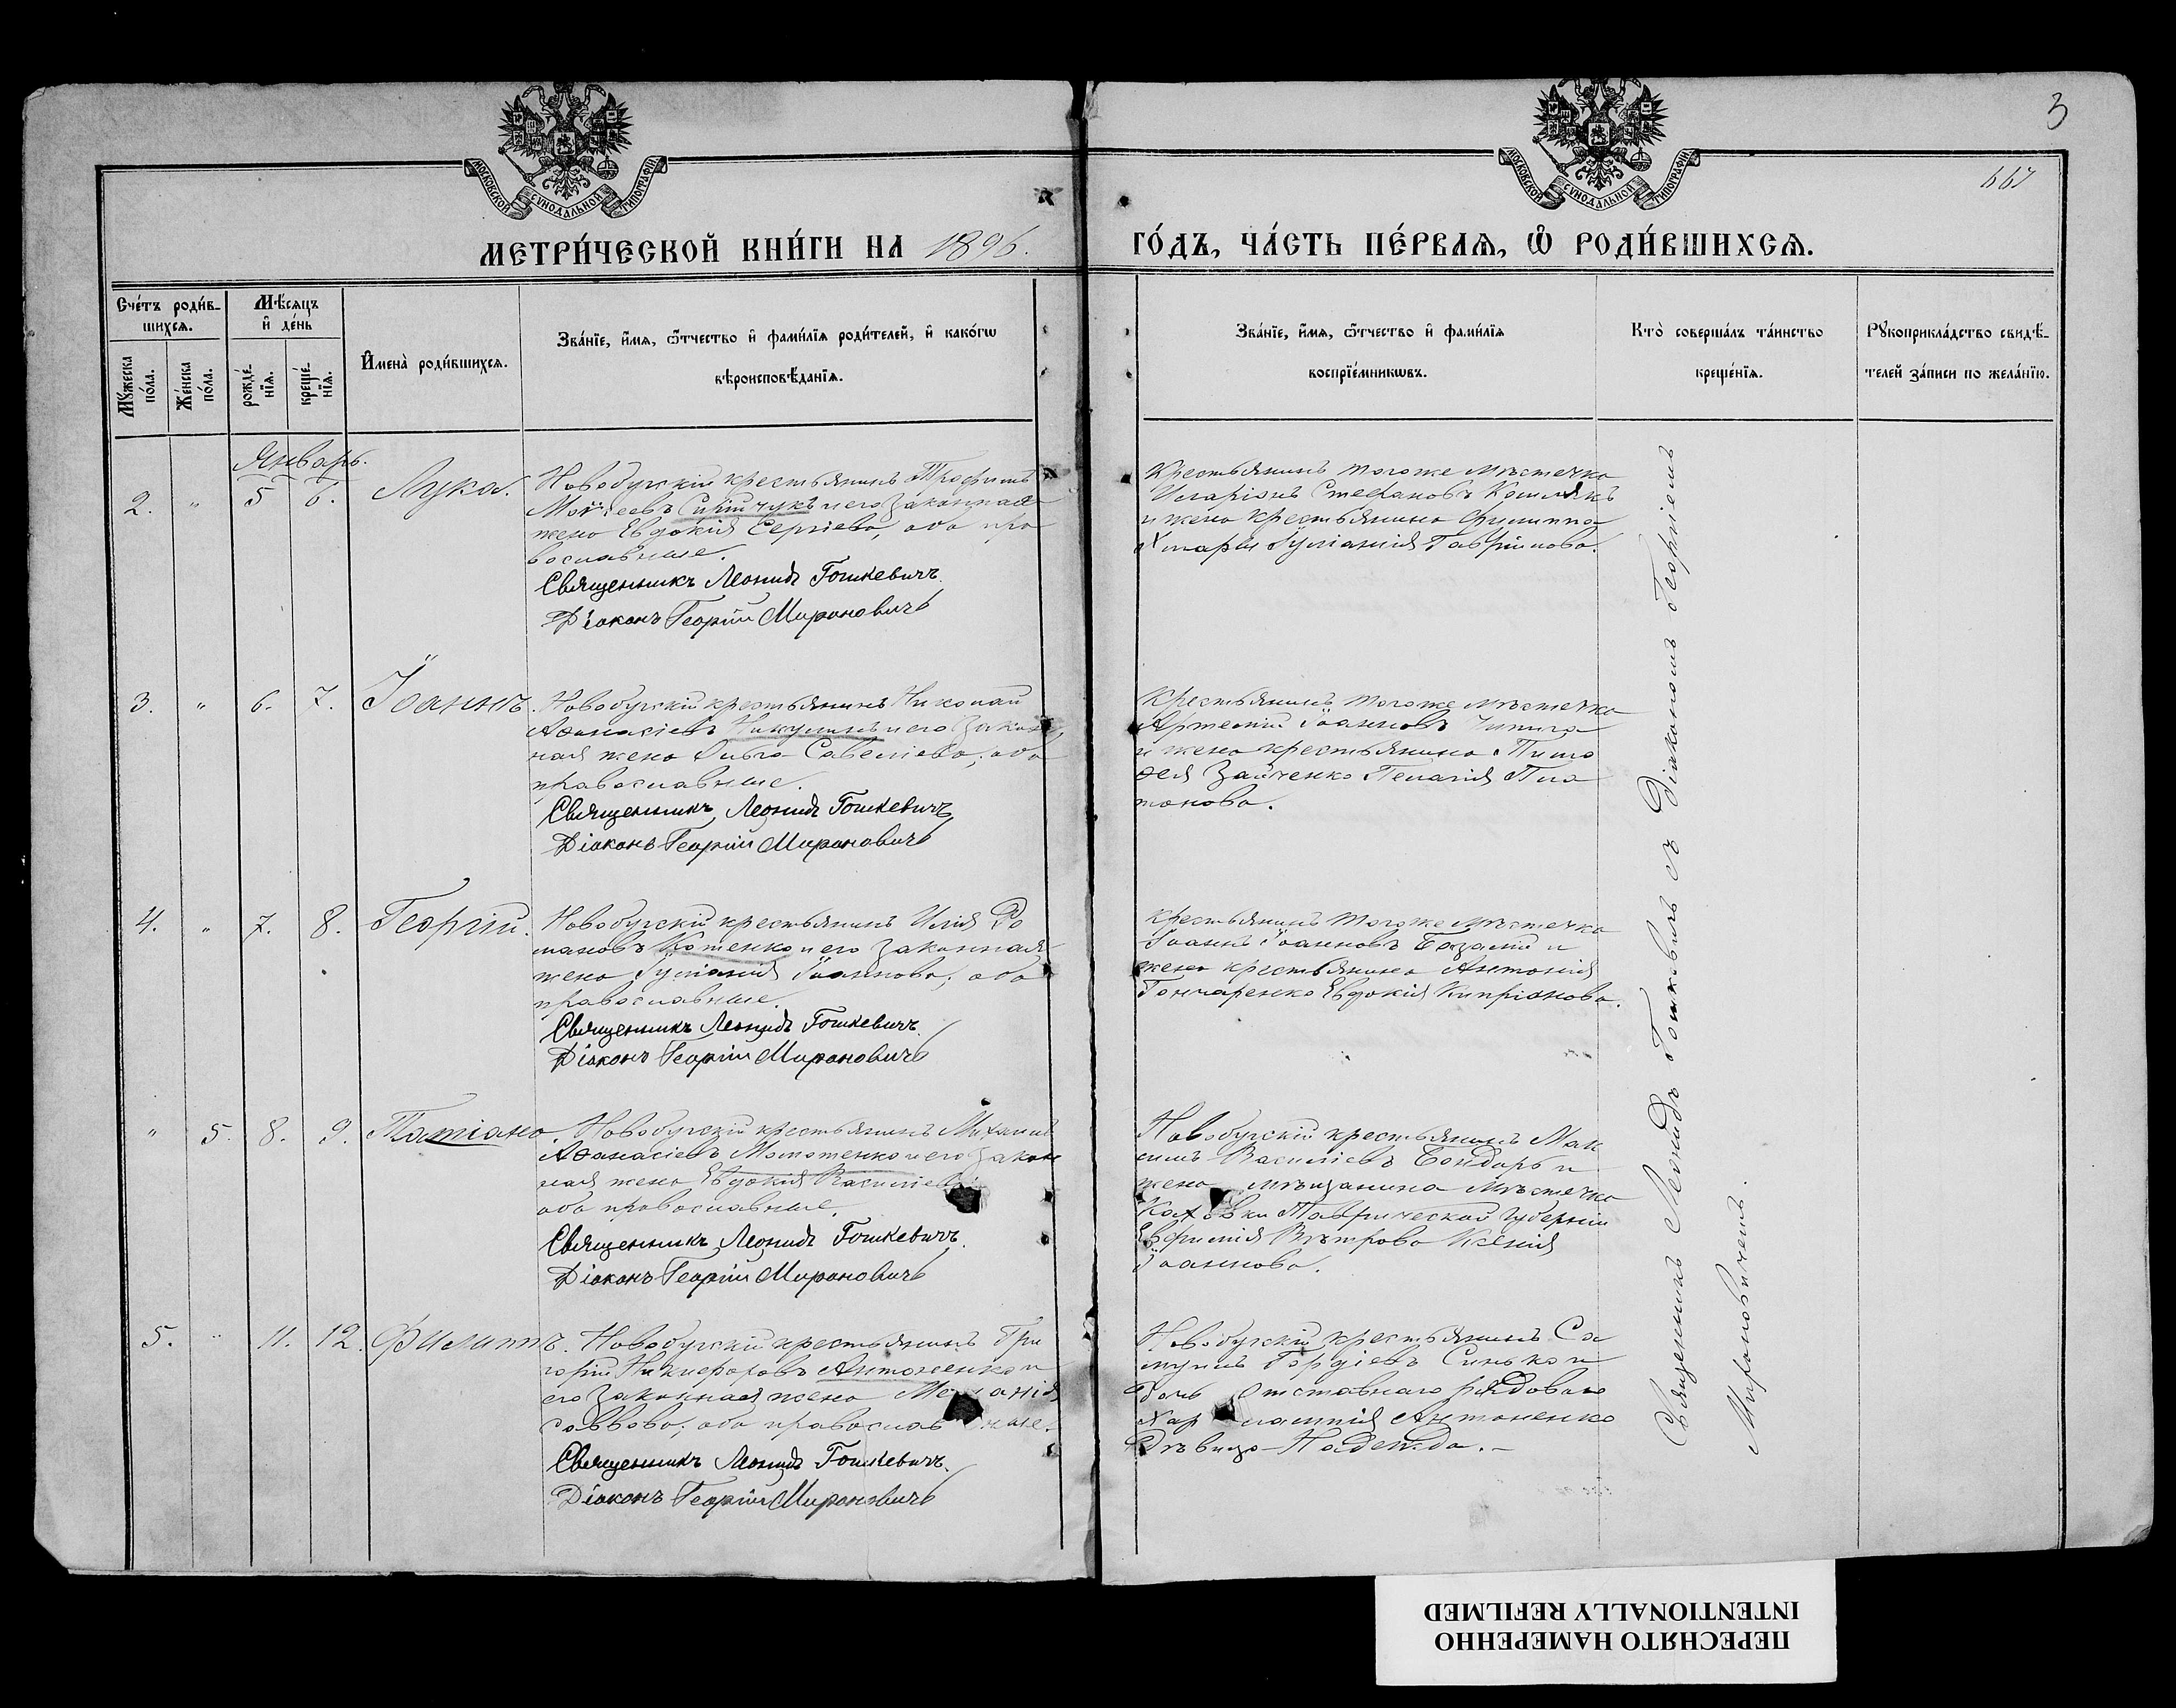 3
667
МОСКОВСКОЙ СѴНОДАЛЬНОЙ ТИПОГРАФІИ
МОСКОВСКОЙ СѴНОДАЛЬНОЙ ТИПОГРАФІИ
МЕТРИ́ЧЕСКОЙ КНИ́ГИ НА 1896. ГО́ДЪ, ЧА́СТЬ ПЕ́РВАѦ, Ѽ РОДИ́ВШИХСѦ.
Сче́тъ роди́в-
шихсѧ.
Мꙋ́жеска по́ла.
Же́нска по́ла.
Мѣ́сѧцъ и҆ де́нь
рожде́-нїѧ.
креще́-нїѧ.
И҆мена̀ роди́вшихсѧ.
Зва́нїе, и҆́мѧ, ѻ҆́тчество и҆ фами́лїѧ роди́телей, и҆ како́гѡ
вѣроисповѣ́данїѧ.
Зва́нїе, и҆́мѧ, ѻ҆́тчество и҆ фами́лїѧ
воспрїе́мникѡвъ.
Кто̀ соверша́лъ та́инство
креще́нїѧ.
Рꙋкоприкла́дство свидѣ́-
телей за́писи по жела́нїю.
Январь.
2. " 5 6. Лука.
Новобугскій крестьянинъ Трофимъ
Моѵсеевъ и его законная
жена Евдокія Сергіева, оба пра
вославные.
Священникъ Леонидъ Гошкевичъ.
Діаконъ Георгій Мироновичъ
Крестьянинъ тогоже мѣстечка
Иларіонъ Стефановъ
и жена крестьянина Филиппа
Іуліанія Гавріилова.
3. " 6. 7. Іоаннъ.
Новобугскій крестьянинъ Николай
Аѳанасіевъ Никулинъ и его закон
ная жена Ольга Савеліева, оба
православные.
Священникъ Леонидъ Гошкевичъ
Діаконъ Георгій Мироновичъ
Крестьянинъ тогоже мѣстечка
Артемій Іоанновъ
и жена крестьянина Тимо
ѳея Зайченко Пелагія Пла
тонова.
4. " 7. 8. Георгій.
Новобугскій крестьянинъ Илія Ро
мановъ Котенко и его законная
жена Іуліанія Іоаннова, оба
православные.
Священникъ Леонидъ Гошкевичъ.
Діаконъ Георгій Мироновичъ
Крестьянинъ тогоже мѣстечка
Іоаннъ Іоанновъ и
жена крестьянина Антонія
Гончаренко Евдокія Кипріанова.
" 5. 8. 9. Татіана.
Новобугскій крестьянинъ Михаилъ
Аѳанасіевъ и его закон
ная жена Евдокія Василіева
оба православные.
Священникъ Леонидъ Гошкевичъ.
Діаконъ Георгій Мироновичъ
Новобугскій крестьянинъ Мак
симъ Василіевъ Бондарь и
жена мѣщанина мѣстечка
Каховки Таврической губерніи
Евфимія Вѣтрова Ксенія
Іоаннова.
5. " 11. 12. Филиппъ.
Новобугскій крестьянинъ Гри
горій Никифоровъ Антоненко и
его законная жена Меланія
Саввова, оба православные.
Священникъ Леонидъ Гошкевичъ.
Діаконъ Георгій Мироновичъ
Новобугскій крестьянинъ Са
муилъ Гордіевъ Синько и
дочь отставнаго рядоваго
Харлампія Антоненко
Дѣвица Надежда.–
Священникъ Леонидъ Гошкевичъ съ Діакономъ Георгіемъ
Мироновичемъ.
ПЕРЕСНЯТО НАМЕРЕННО
INTENTIONALLY REFILMED